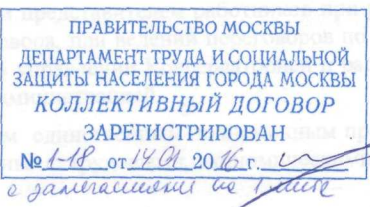 ПРАВИТЕЛЬСТВО МОСКВЫ
ДЕПАРТАМЕНТ ТРУДА И СОЦИАЛЬНОЙ
ЗАЩИТЫ НАСЕЛЕНИЯ ГОРОДА МОСКВЫ
КОЛЛЕКТИВНЫЙ ДОГОВОР
ЗАРЕГИСТРИРОВАН
№ 1-18 от 14.01 2016 г.
с замечаниями на 1 листе